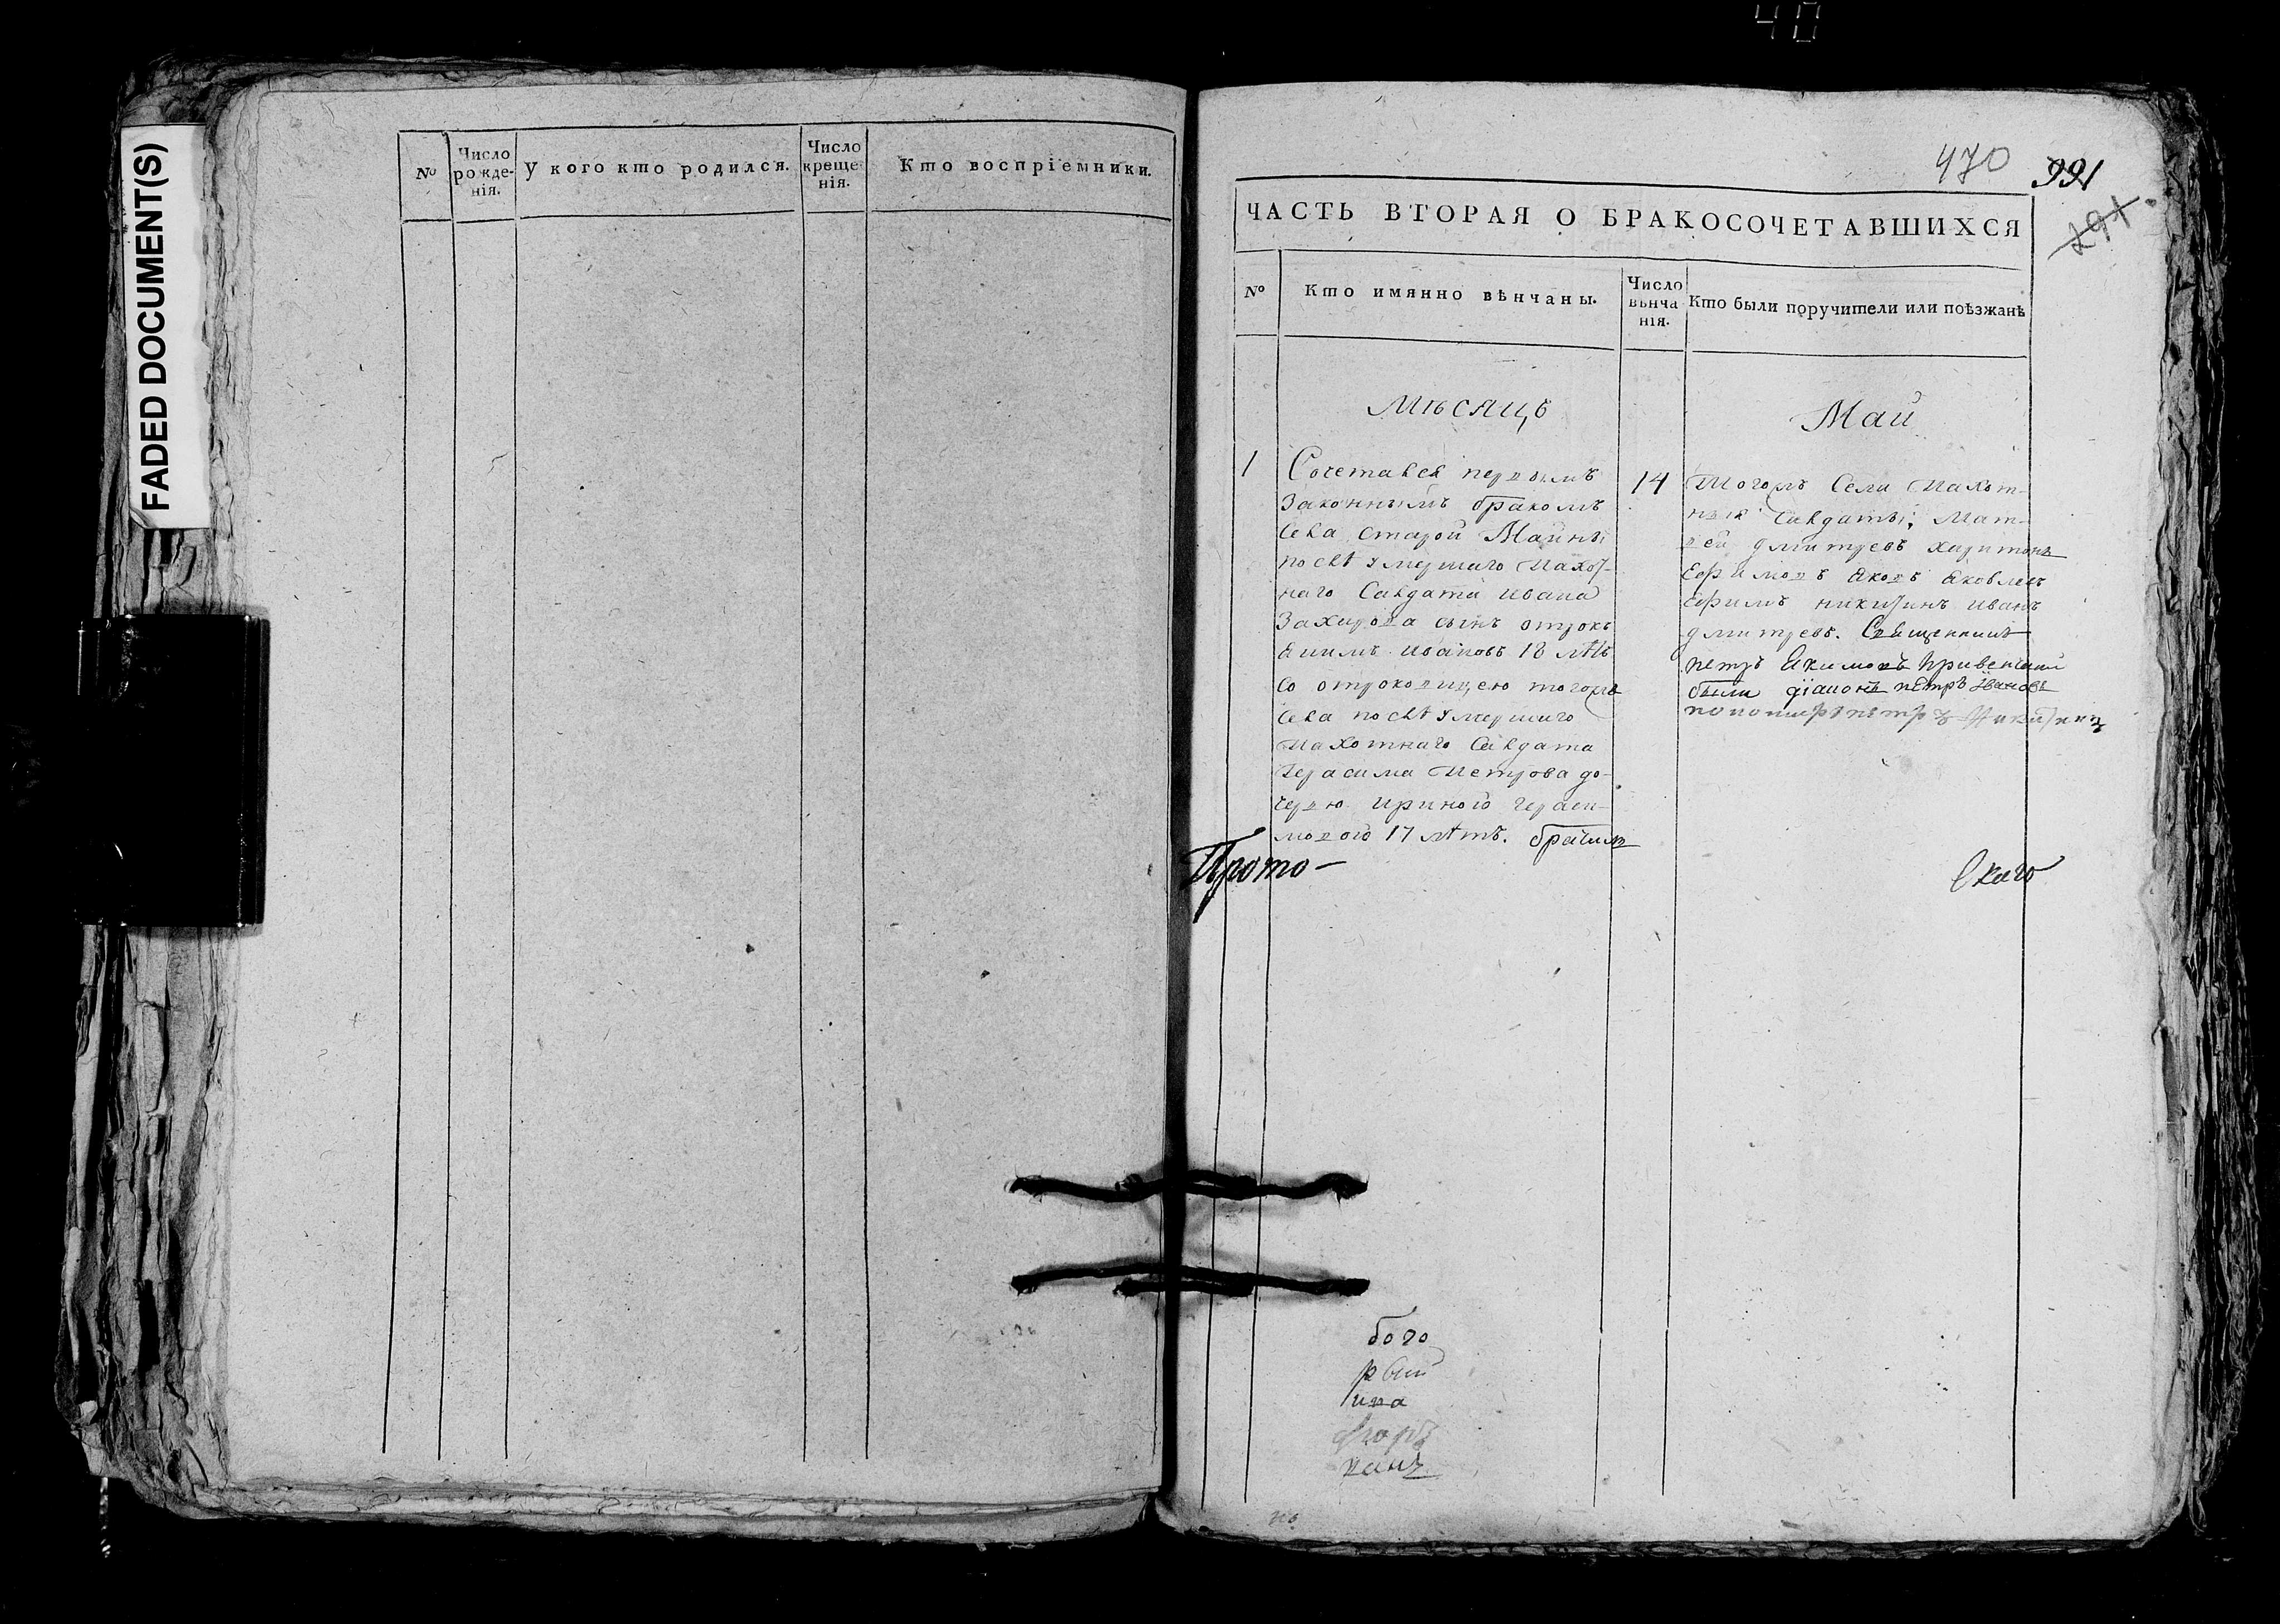 40
FADED DOCUMENT(S)
№
Число рожде-нія.
У кого кто родился.
Число креще-нія.
Кто воспріемники.
470
991
291
ЧАСТЬ ВТОРАЯ О БРАКОСОЧЕТАВШИХСЯ
№
Кто имянно вѣнчаны.
Число вѣнча нія.
Кто были поручители или поѣзжанѣ
Мѣсяцъ
Май
1
Сочетався первымъ
законнымъ бракомъ
села Старой Майны
послѣ умершаго Пахот-
наго Салдата Ивана
Захарова сынъ отрокъ
Акимъ Ивановъ 18 лѣтъ
со отроковицею тогожъ
села послѣ умершаго
Пахотнаго Салдата
Герасима Петрова до-
черью Ириною Гераси-
мовою 17 лѣтъ. бракомъ
14
Тогожъ Села Пахот-
ныя Салдаты; Мат-
вей Дмитревъ Харитонъ
Ефимовъ Яковъ Яковлевъ
Ефимъ Никитинъ Иванъ
Дмитревъ. Священникъ
Петръ Акимовъ при венчании
были діаконъ Петръ Ивановъ
пономарь Петръ Никитинъ
Прото-
скаго
бого
ина
по